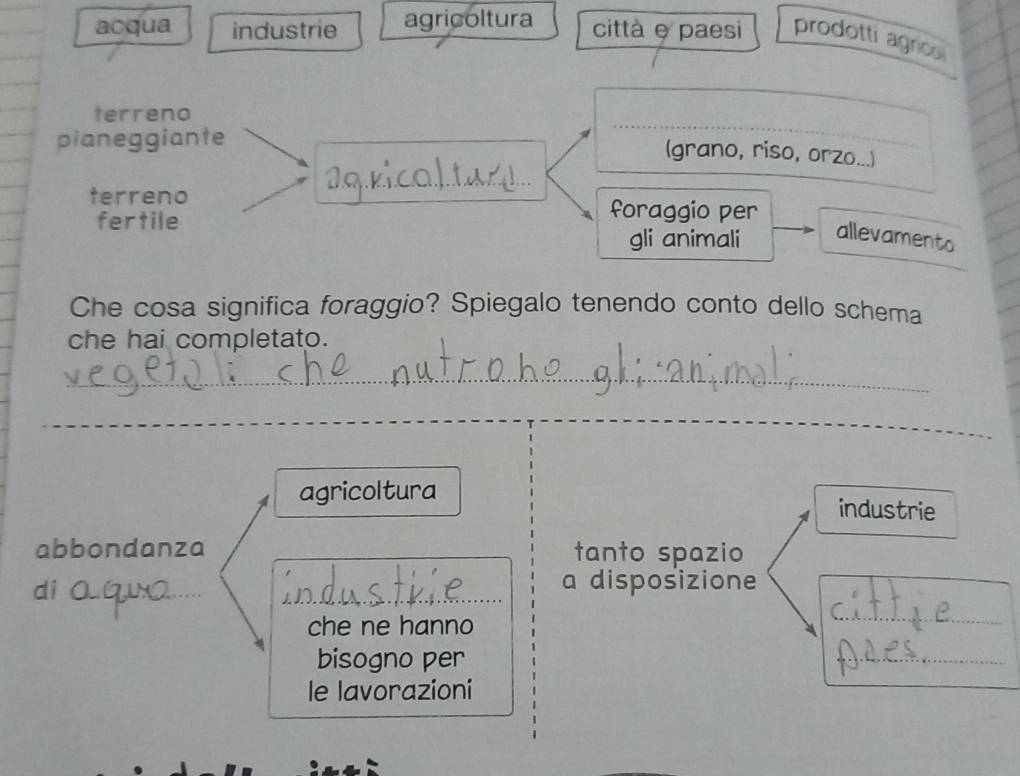 acqua
industrie
agricoltura
città e paesi
prodotti agricoli
terreno
pianeggiante
terreno
fertile
agricoltura
(grano, riso, orzo...)
foraggio per
gli animali
allevamento
Che cosa significa foraggio? Spiegalo tenendo conto dello schema
che hai completato.
vegetali che nutrono gli animali
agricoltura
abbondanza
di aqua
industrie
che ne hanno
bisogno per
le lavorazioni
tanto spazio
a disposizione
industrie
città e
paes